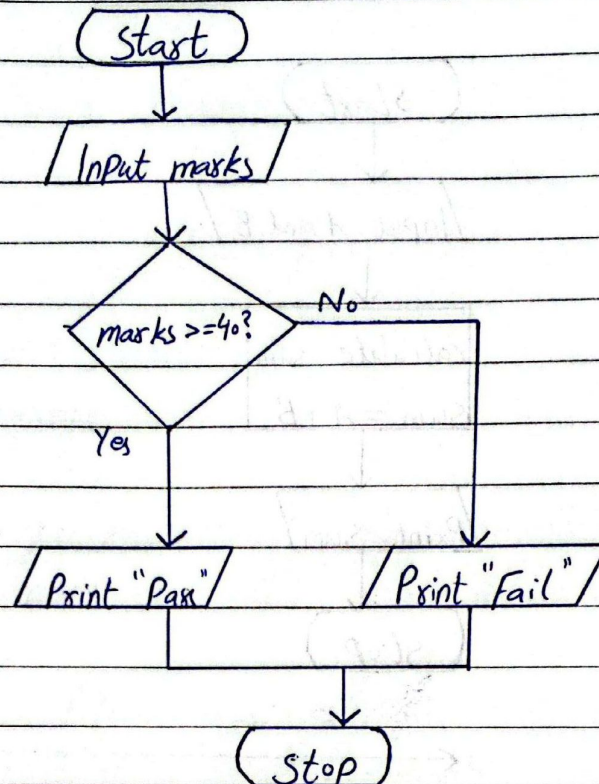 Start
Input marks
marks >=40?
No
Yes
Print "Pass"
Print "Fail"
Stop